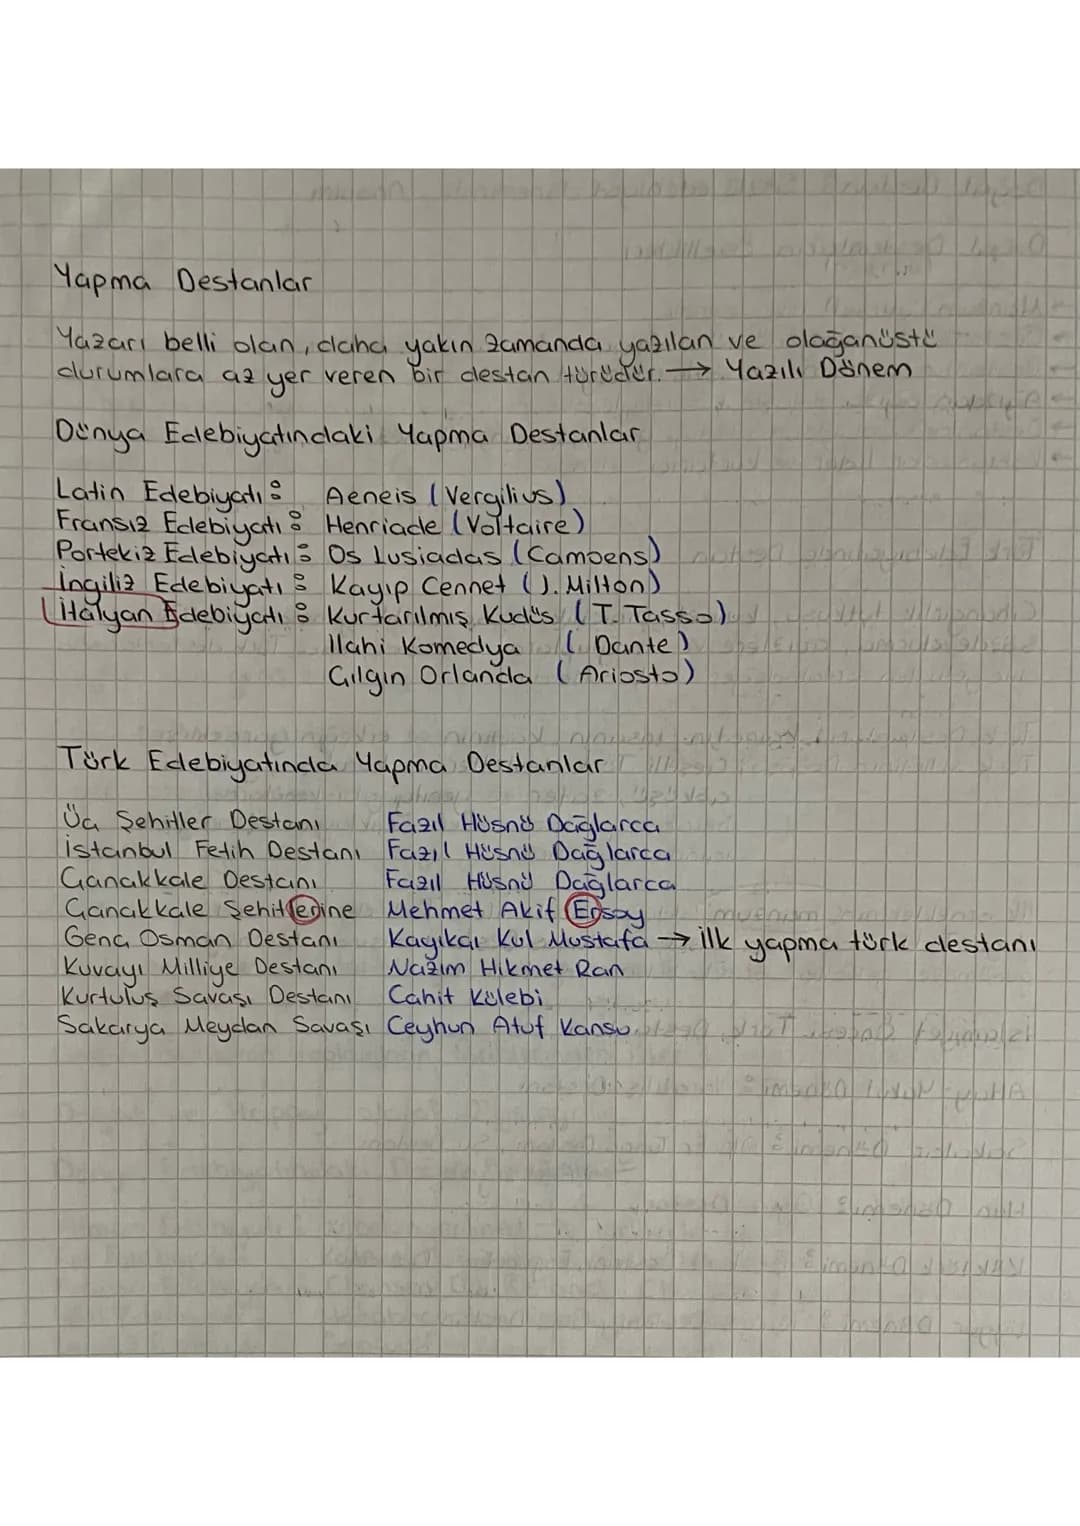 Yapma Destanlar
Yazarı belli olan, daha yakın zamanda yazılan ve olağanüstü
durumlara az yer veren bir destan türüdür. → Yazılı Dönem
Dünya Edebiyatındaki Yapma Destanlar
Latin Edebiyatı : Aeneis (Vergilius)
Fransız Edebiyatı : Henriade (Voltaire)
Portekiz Edebiyatı : Os Lusiadas (Camoens)
İngiliz Edebiyatı : Kayıp Cennet (J. Milton)
İtalyan Edebiyatı : Kurtarılmış Kudüs (T. Tasso)
İlahi Komedya (Dante)
Çılgın Orlanda (Ariosto)
Türk Edebiyatında Yapma Destanlar
Üç Şehitler Destanı Fazıl Hüsnü Dağlarca
İstanbul Fetih Destanı Fazıl Hüsnü Dağlarca
Çanakkale Destanı Fazıl Hüsnü Dağlarca
Çanakkale Şehitlerine Mehmet Akif Ersoy
Genç Osman Destanı Kayıkçı Kul Mustafa → İlk yapma türk destanı
Kuvayı Milliye Destanı Nazım Hikmet Ran
Kurtuluş Savaşı Destanı Cahit Külebi
Sakarya Meydan Savaşı Ceyhun Atuf Kansu